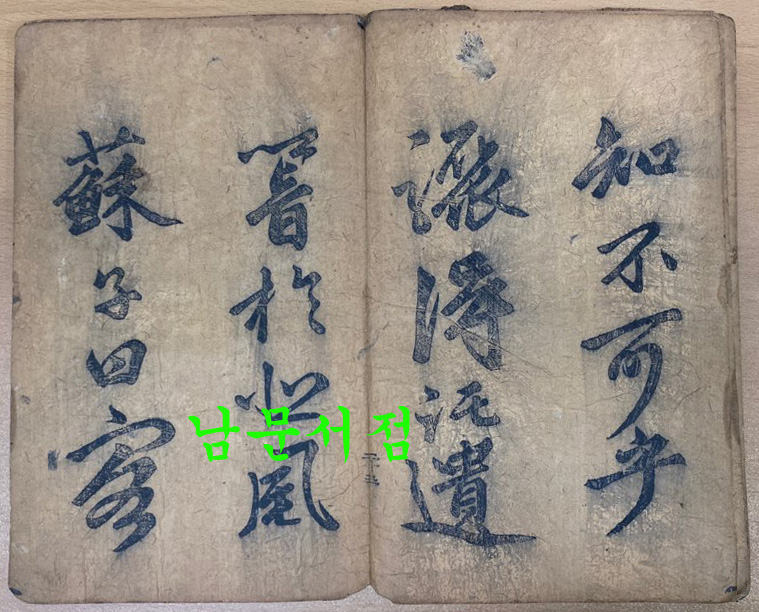 知不可乎
驟得託遺
響於悲風
蘇子曰客
남문서점